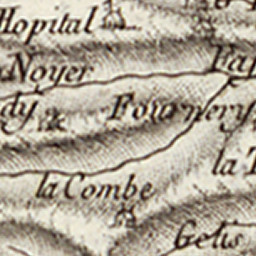 Hopital
Noyer
dy Fournery
la
la Combe
Gelis